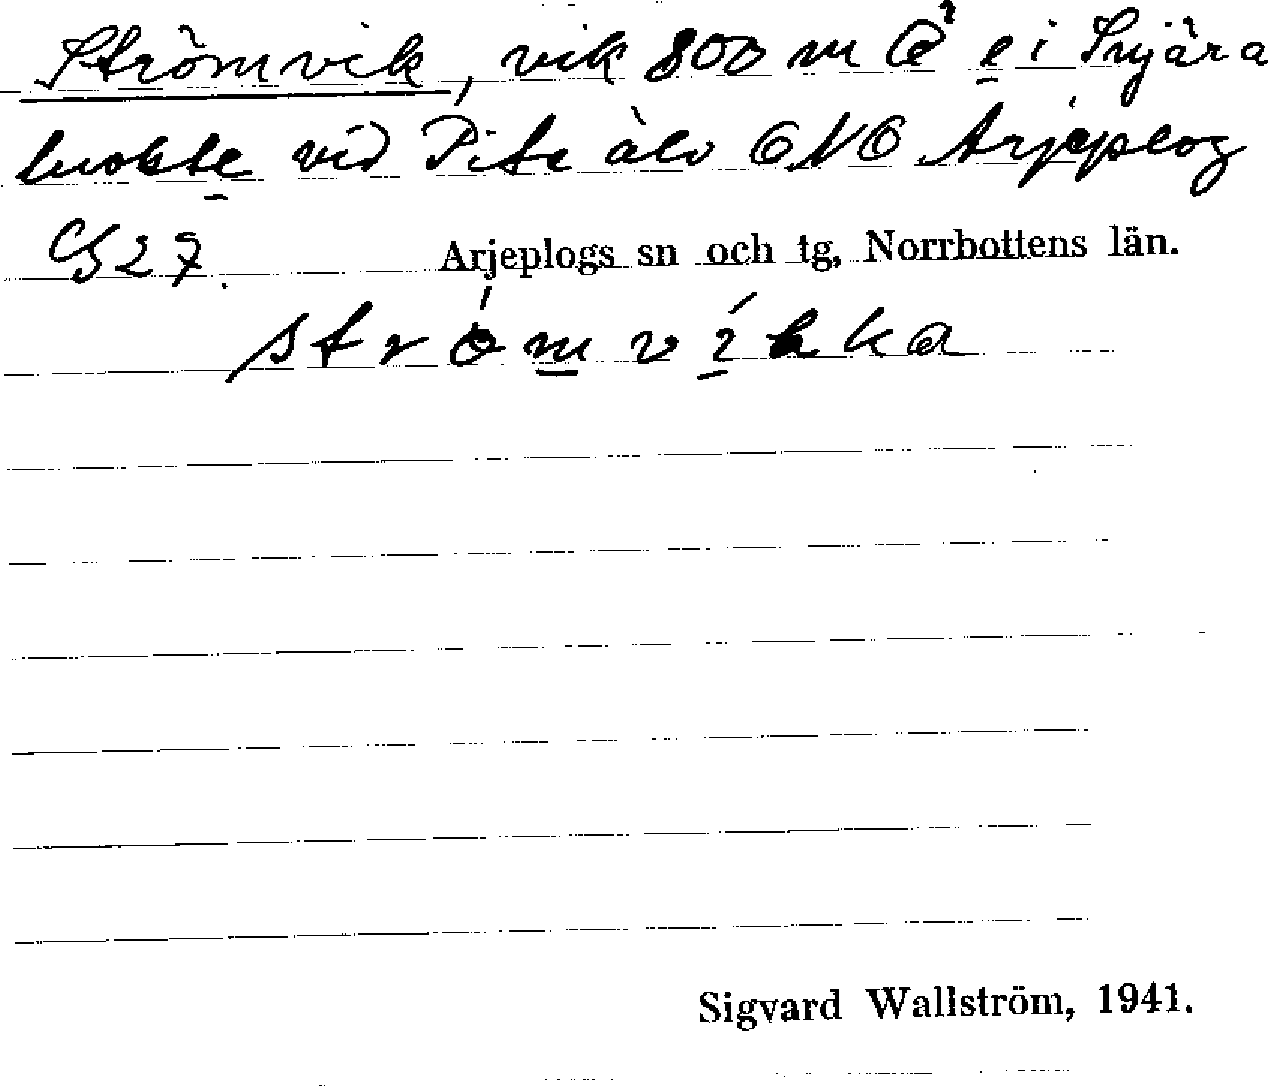 Strömvik, vik 800 m Ö e i Snjära
luokte vid Pite älv ONO Arjeplog
G27. Arjeplogs sn och tg, Norrbottens län.
strömvikka
Sigvard Wallström, 1941.